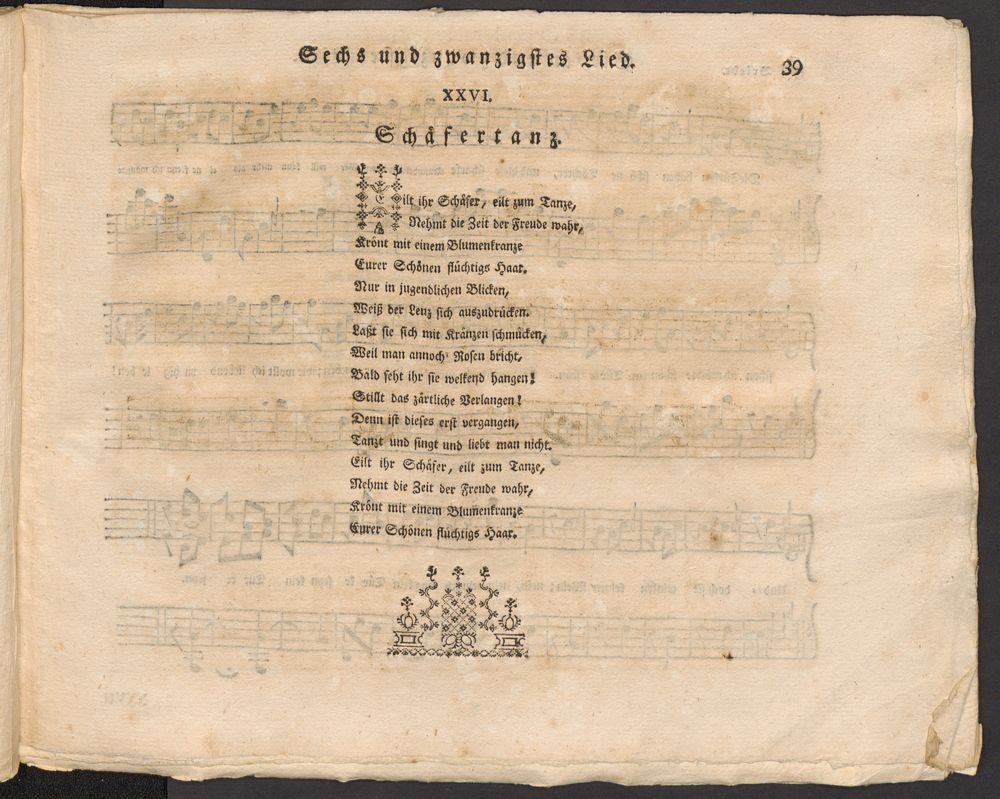 Sechs und zwanzigstes Lied.
39
XXVI.
Schäfertanz.
Eilt ihr Schäfer, eilt zum Tanze,
Nehmt die Zeit der Freude wahr,
Krönt mit einem Blumenkranze
Eurer Schönen flüchtigs Haar.
Nur in jugendlichen Blicken,
Weiß der Lenz sich auszudrücken.
Laßt sie sich mit Kränzen schmücken,
Weil man annoch Rosen bricht,
Bald seht ihr sie welkend hangen!
Stillt das zärtliche Verlangen!
Denn ist dieses erst vergangen,
Tanzt und singt und liebt man nicht.
Eilt ihr Schäfer, eilt zum Tanze,
Nehmt die Zeit der Freude wahr,
Krönt mit einem Blumenkranze
Eurer Schönen flüchtigs Haar.